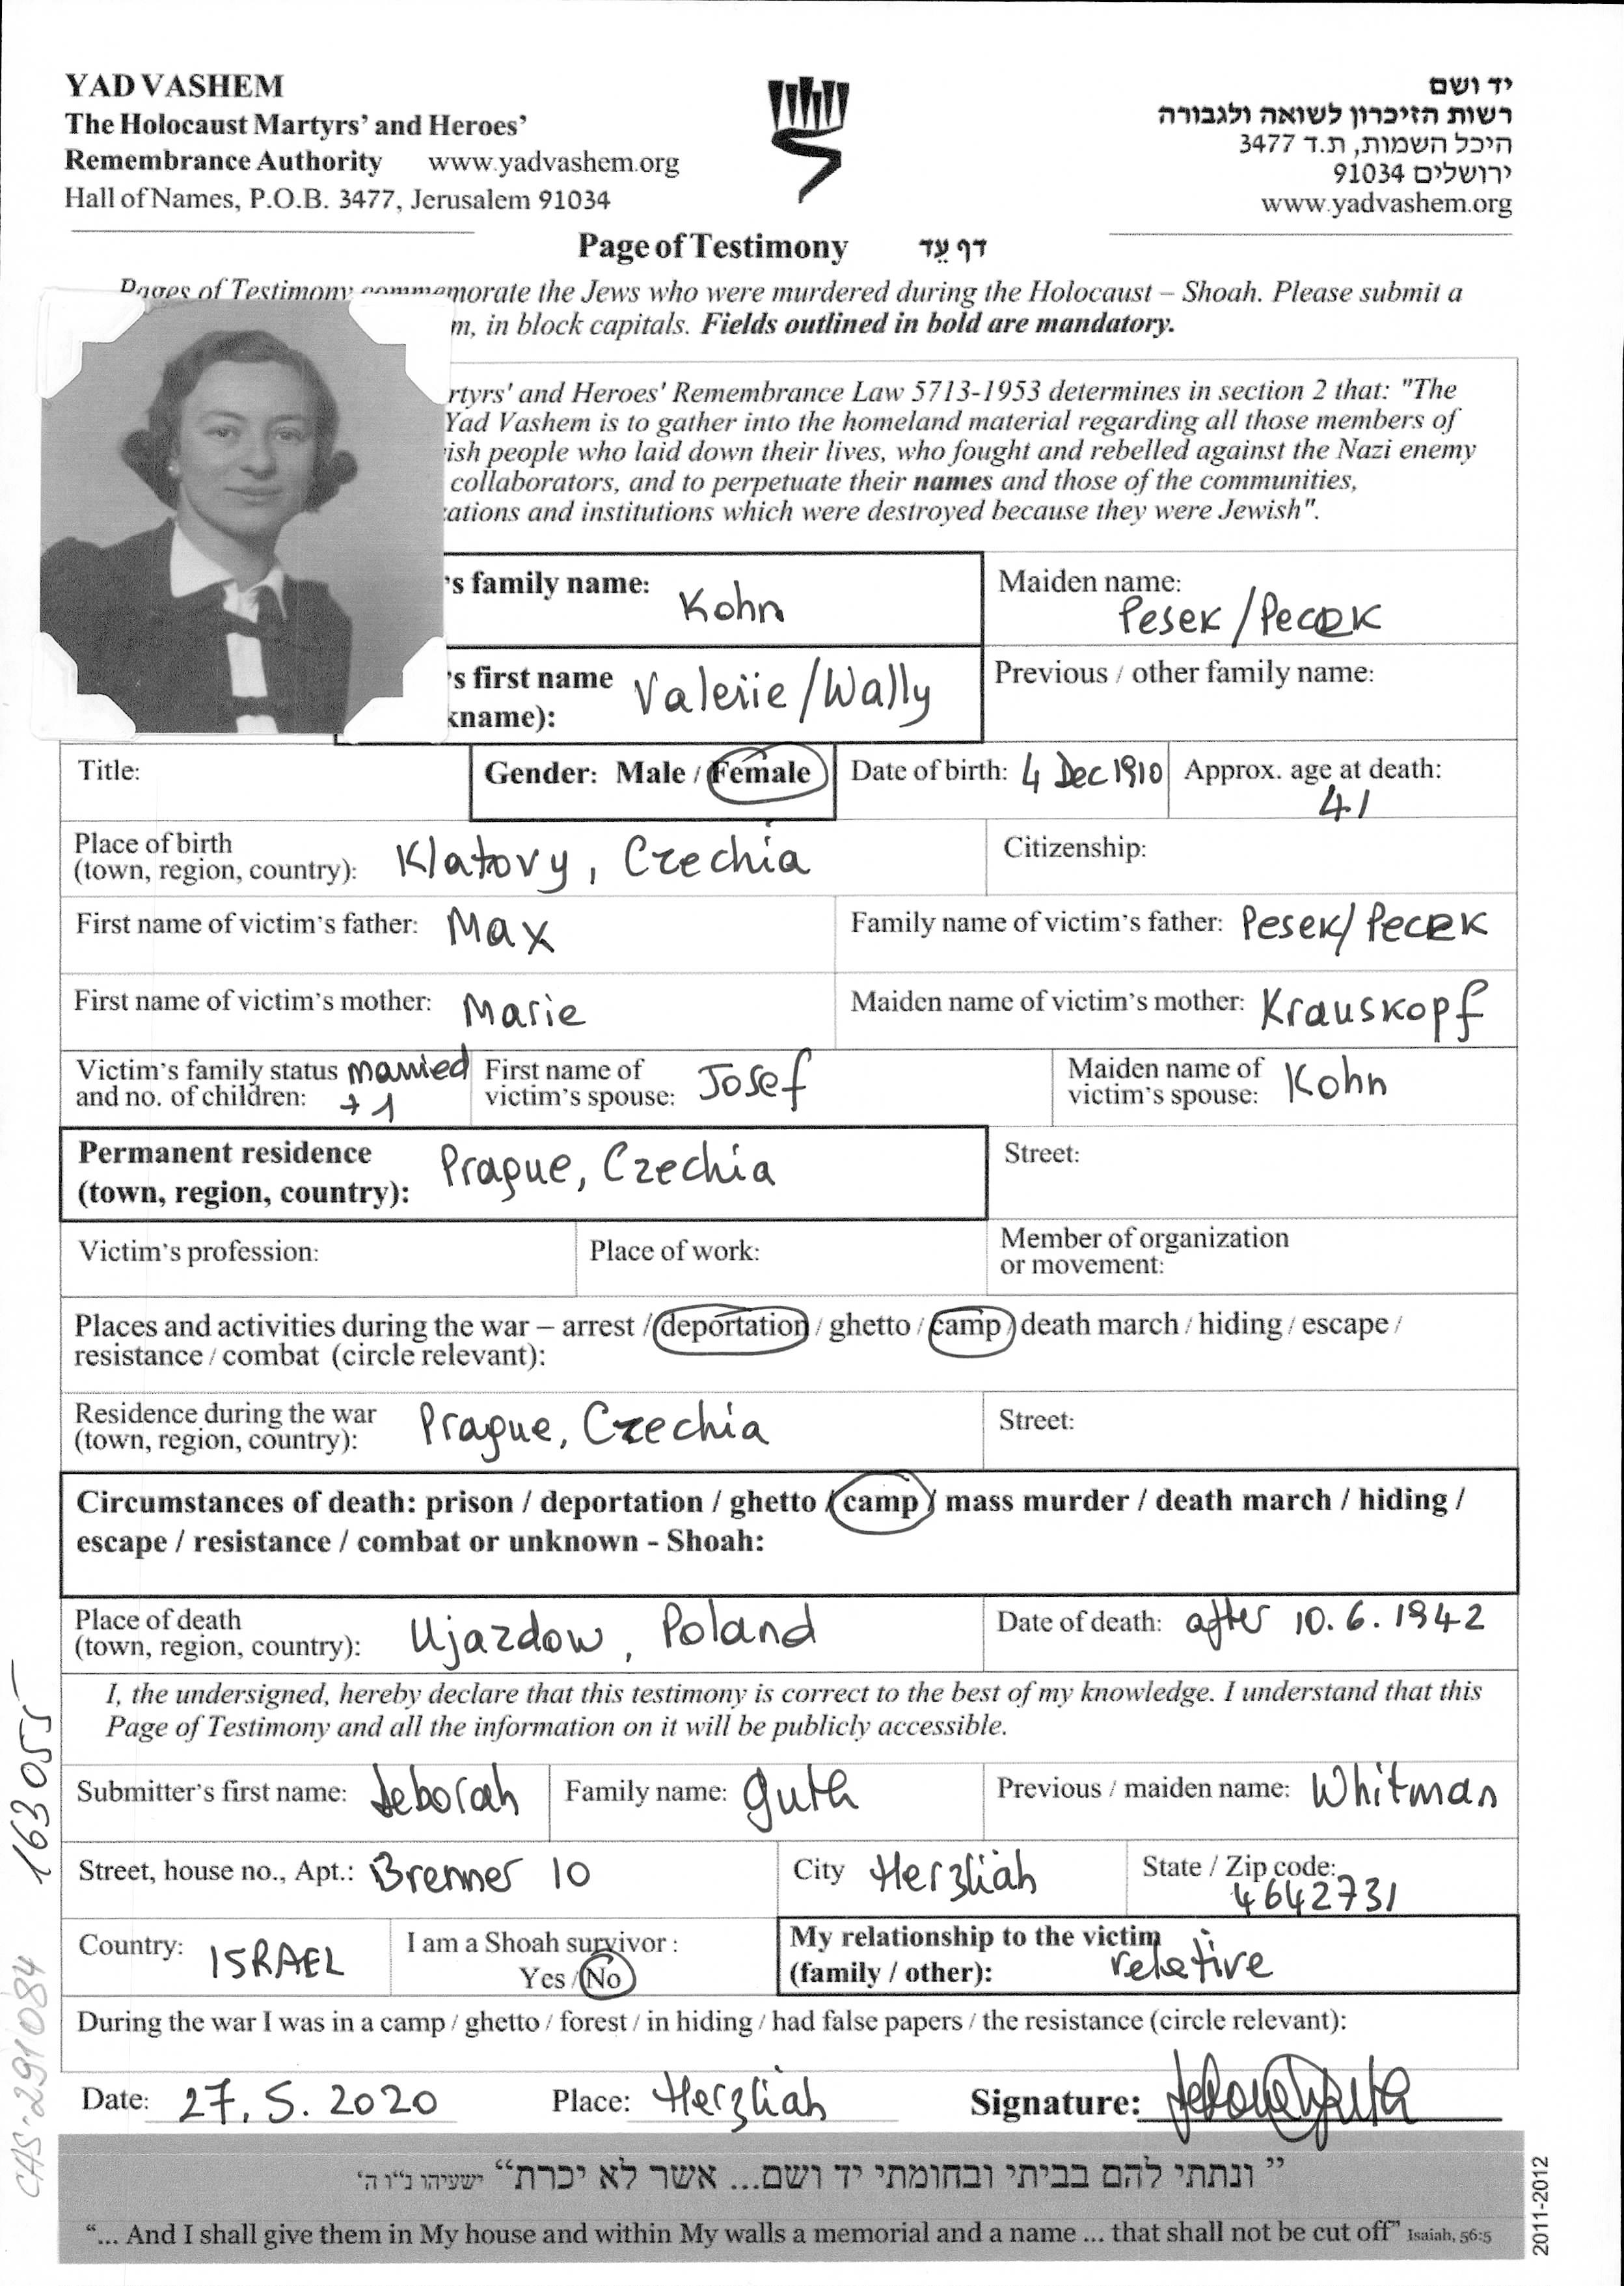 YAD VASHEM
The Holocaust Martyrs' and Heroes'
Remembrance Authority www.yadvashem.org
Hall of Names, P.O.B. 3477, Jerusalem 91034
יד ושם
רשות הזיכרון לשואה ולגבורה
היכל השמות, ת.ד 3477
ירושלים 91034
www.yadvashem.org
Page of Testimony דף עֵד
Pages of Testimony commemorate the Jews who were murdered during the Holocaust – Shoah. Please submit a
m, in block capitals. Fields outlined in bold are mandatory.
rtyrs' and Heroes' Remembrance Law 5713-1953 determines in section 2 that: "The
Yad Vashem is to gather into the homeland material regarding all those members of
ish people who laid down their lives, who fought and rebelled against the Nazi enemy
collaborators, and to perpetuate their names and those of the communities,
ations and institutions which were destroyed because they were Jewish".
's family name: Kohn
Maiden name: Pesek/Pecek
's first name Valerie/Wally
kname):
Previous / other family name:
Title:
Gender: Male / Female
Date of birth: 4 Dec 1910
Approx. age at death: 41
Place of birth
(town, region, country): Klatovy, Czechia
Citizenship:
First name of victim's father: Max
Family name of victim's father: Pesek/Pecek
First name of victim's mother: Marie
Maiden name of victim's mother: Krauskopf
Victim's family status married
and no. of children: +1
First name of
victim's spouse: Josef
Maiden name of
victim's spouse: Kohn
Permanent residence
(town, region, country): Prague, Czechia
Street:
Victim's profession:
Place of work:
Member of organization
or movement:
Places and activities during the war – arrest / deportation / ghetto / camp / death march / hiding / escape /
resistance / combat (circle relevant):
Residence during the war
(town, region, country): Prague, Czechia
Street:
Circumstances of death: prison / deportation / ghetto / camp / mass murder / death march / hiding /
escape / resistance / combat or unknown - Shoah:
Place of death
(town, region, country): Ujazdow, Poland
Date of death: after 10.6.1942
I, the undersigned, hereby declare that this testimony is correct to the best of my knowledge. I understand that this
Page of Testimony and all the information on it will be publicly accessible.
Submitter's first name: Deborah
Family name: Guth
Previous / maiden name: Whitman
Street, house no., Apt.: Brenner 10
City Herzliah
State / Zip code: 4642731
Country: ISRAEL
I am a Shoah survivor :
Yes / No
My relationship to the victim
(family / other): relative
During the war I was in a camp / ghetto / forest / in hiding / had false papers / the resistance (circle relevant):
Date: 27.5.2020
Place: Herzliah
Signature: Deborah Guth
" ונתתי להם בביתי ובחומתי יד ושם... אשר לא יכרת" ישעיהו נ"ו ה'
"... And I shall give them in My house and within My walls a memorial and a name ... that shall not be cut off" Isaiah, 56:5
2011-2012
163055
CAS-291084